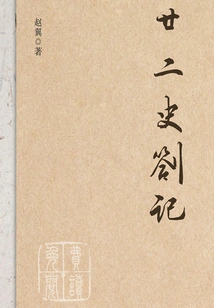 廿二史劄记
赵翼◎著